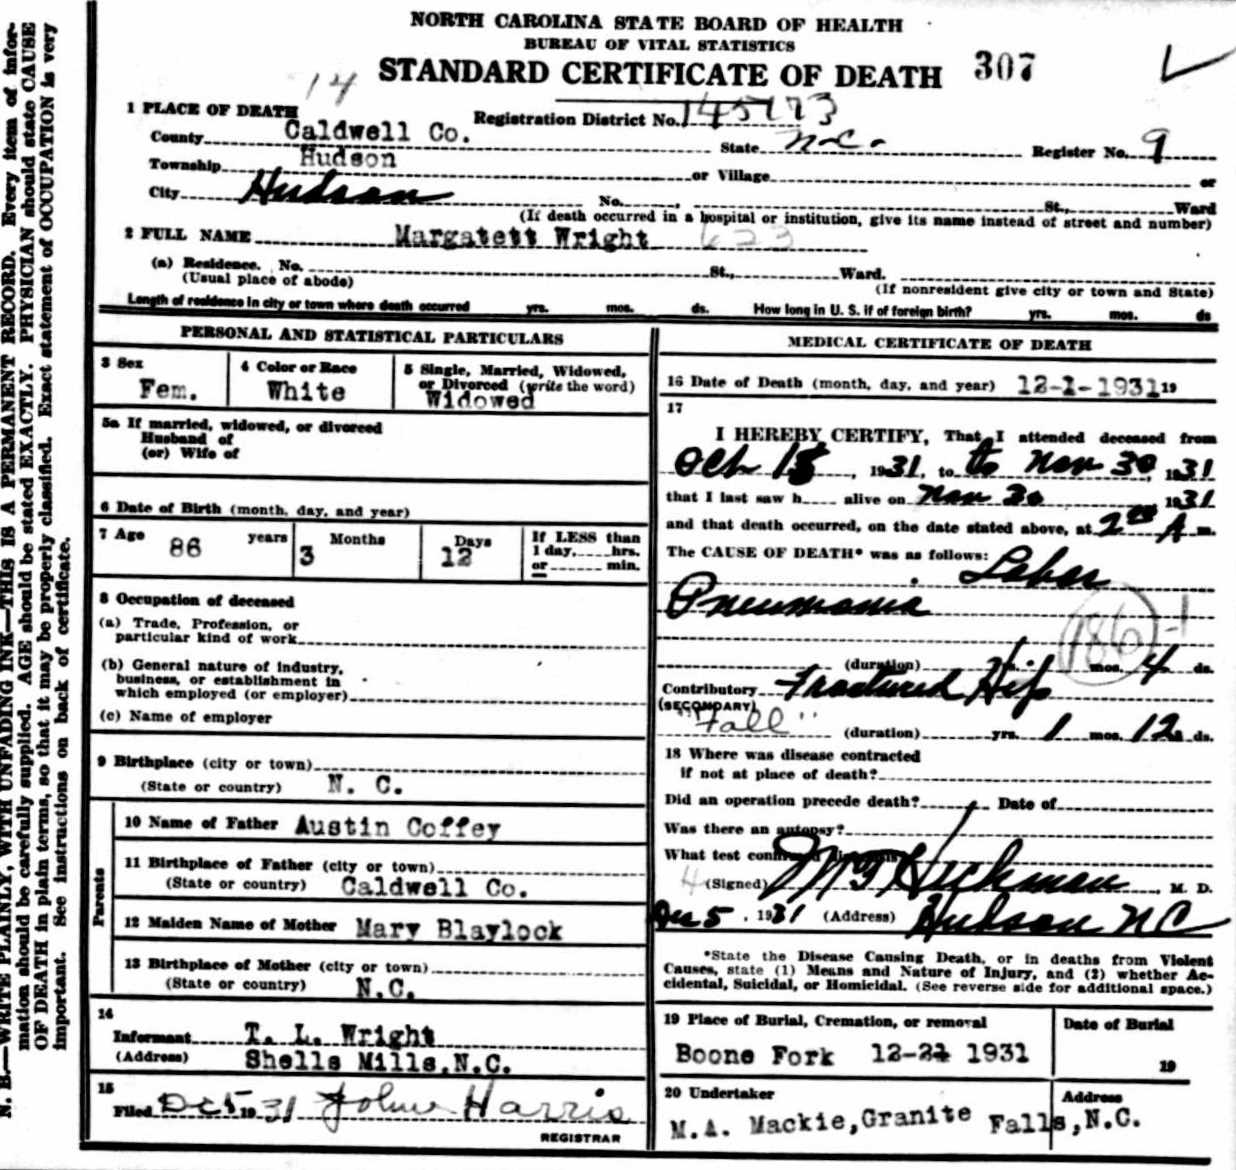 NORTH CAROLINA STATE BOARD OF HEALTH
BUREAU OF VITAL STATISTICS
STANDARD CERTIFICATE OF DEATH 307
14
1 PLACE OF DEATH
Registration District No. 145773
County Caldwell Co. State N.C. Register No. 9
Township Hudson or Village or
City Hudson No. , St., Ward
(If death occurred in a hospital or institution, give its name instead of street and number)
2 FULL NAME Margatett Wright 623
(a) Residence. No. St., Ward.
(Usual place of abode) (If nonresident give city or town and State)
Length of residence in city or town where death occurred yrs. mos. ds. How long in U. S. if of foreign birth? yrs. mos. ds
PERSONAL AND STATISTICAL PARTICULARS
3 Sex
Fem.
4 Color or Race
White
5 Single, Married, Widowed,
or Divorced (write the word)
Widowed
5a If married, widowed, or divorced
Husband of
(or) Wife of
6 Date of Birth (month, day, and year)
7 Age 86 years 3 Months 12 Days
If LESS than
1 day, hrs.
or min.
8 Occupation of deceased
(a) Trade, Profession, or
particular kind of work
(b) General nature of industry,
business, or establishment in
which employed (or employer)
(c) Name of employer
9 Birthplace (city or town)
(State or country) N. C.
Parents
10 Name of Father Austin Coffey
11 Birthplace of Father (city or town)
(State or country) Caldwell Co.
12 Maiden Name of Mother Mary Blaylock
13 Birthplace of Mother (city or town)
(State or country) N.C.
14
Informant T. L. Wright
(Address) Shells Mills, N.C.
15
Filed Dec 5 1931 John Harris
REGISTRAR
MEDICAL CERTIFICATE OF DEATH
16 Date of Death (month, day, and year) 12-1-1931 19
17
I HEREBY CERTIFY, That I attended deceased from
Oct 18, 1931, to to Nov 30, 1931
that I last saw h alive on Nov 30 1931
and that death occurred, on the date stated above, at 2 A m.
The CAUSE OF DEATH* was as follows: Lobar
Pneumonia
186-1
(duration) mos. 4 ds.
Contributory Fractured Hip
(SECONDARY)
"Fall" (duration) yrs. 1 mos. 12 ds.
18 Where was disease contracted
if not at place of death?
Did an operation precede death? Date of
Was there an autopsy?
What test confirmed diagnosis
4 (Signed) M T Hickman, M. D.
Dec 5, 1931 (Address) Hudson NC
*State the Disease Causing Death, or in deaths from Violent
Causes, state (1) Means and Nature of Injury, and (2) whether Ac-
cidental, Suicidal, or Homicidal. (See reverse side for additional space.)
19 Place of Burial, Cremation, or removal
Date of Burial
Boone Fork 12-2 1931
19
20 Undertaker
Address
M.A. Mackie, Granite Falls, N.C.
N. B.—WRITE PLAINLY, WITH UNFADING INK—THIS IS A PERMANENT RECORD. Every item of infor-
mation should be carefully supplied. AGE should be stated EXACTLY. PHYSICIAN should state CAUSE
OF DEATH in plain terms, so that it may be properly classified. Exact statement of OCCUPATION is very
important. See instructions on back of certificate.